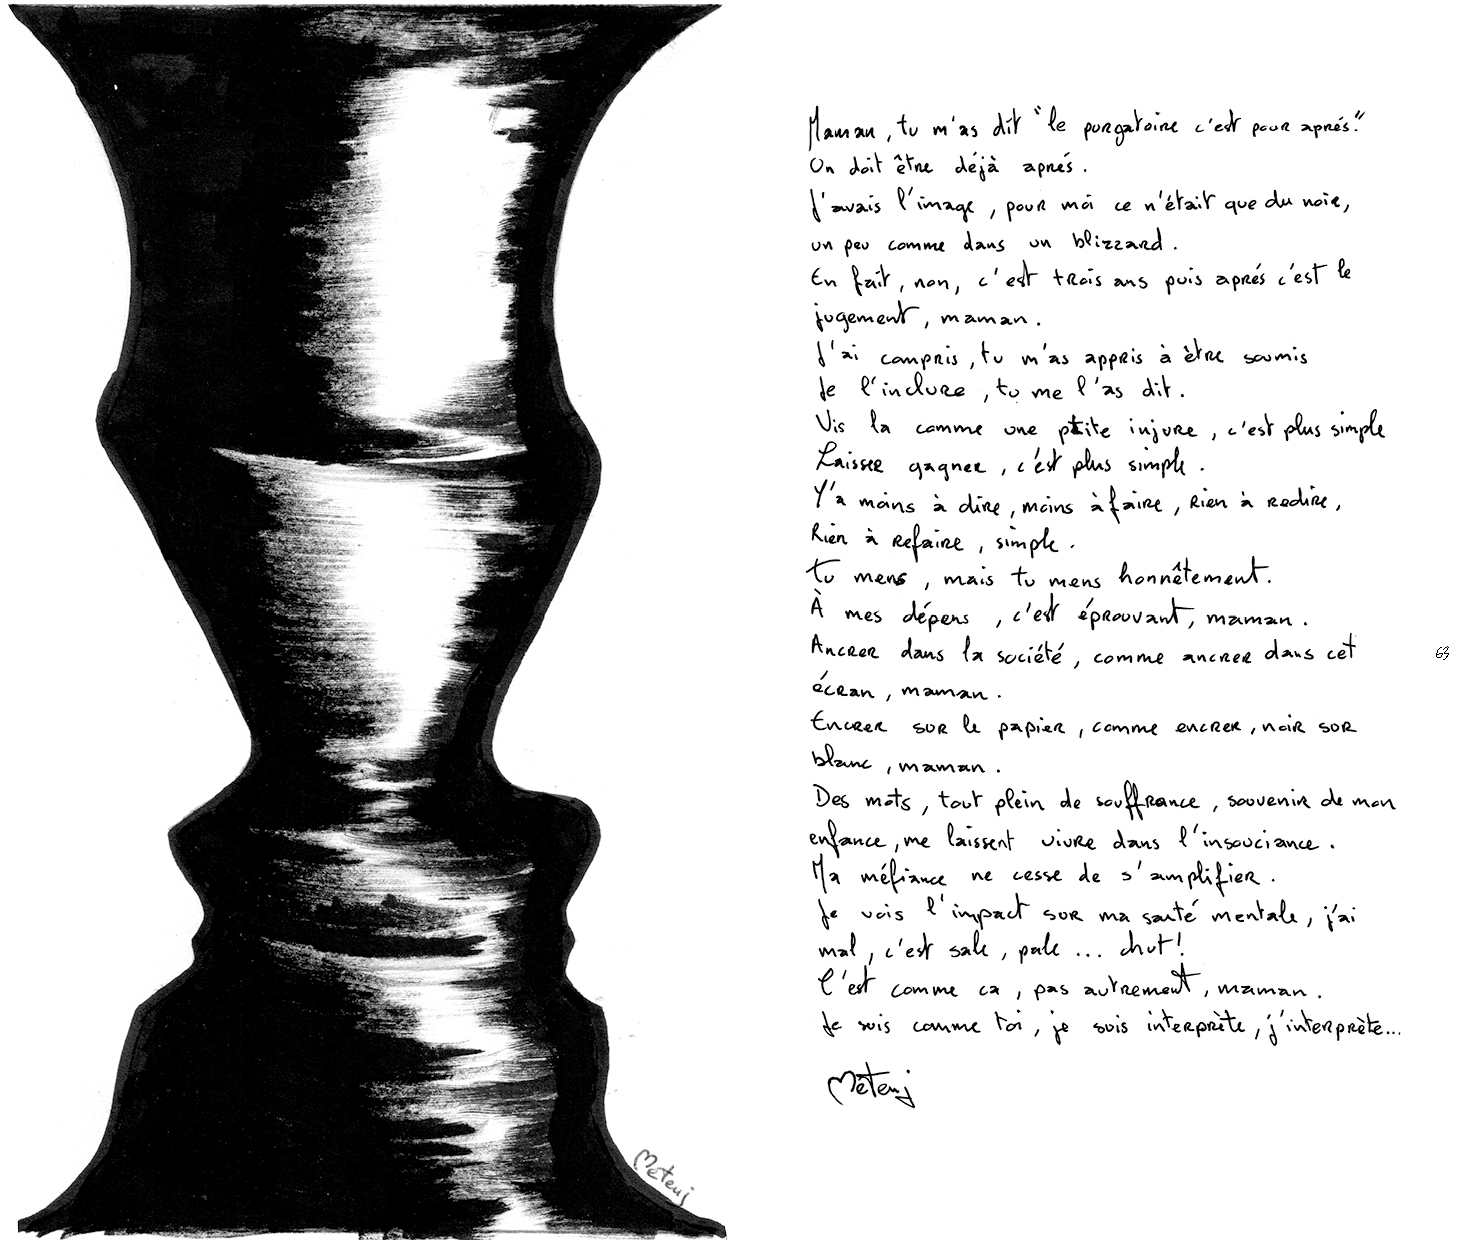 Maman, tu m'as dit "le purgatoire c'est pour aprés."
On doit être déjà aprés.
J'avais l'image, pour moi ce n'était que du noir,
un peu comme dans un blizzard.
En fait, non, c'est trois ans puis aprés c'est le
jugement, maman.
J'ai compris, tu m'as appris à être soumis
Je l'inclure, tu me l'as dit.
Vis la comme une ptite injure, c'est plus simple
Laisser gagner, c'est plus simple.
Y'a moins à dire, moins à faire, rien à redire,
Rien à refaire, simple.
Tu mens, mais tu mens honnêtement.
À mes dépens, c'est éprouvant, maman.
Ancrer dans la société, comme ancrer dans cet
écran, maman.
Encrer sur le papier, comme encrer, noir sur
blanc, maman.
Des mots, tout plein de souffrance, souvenir de mon
enfance, me laissent vivre dans l'insouciance.
Ma méfiance ne cesse de s'amplifier.
Je vois l'impact sur ma santé mentale, j'ai
mal, c'est sale, pale ... chut!
C'est comme ca, pas autrement, maman.
Je suis comme toi, je suis interprète, j'interprète...
Metenj
Metenj
63